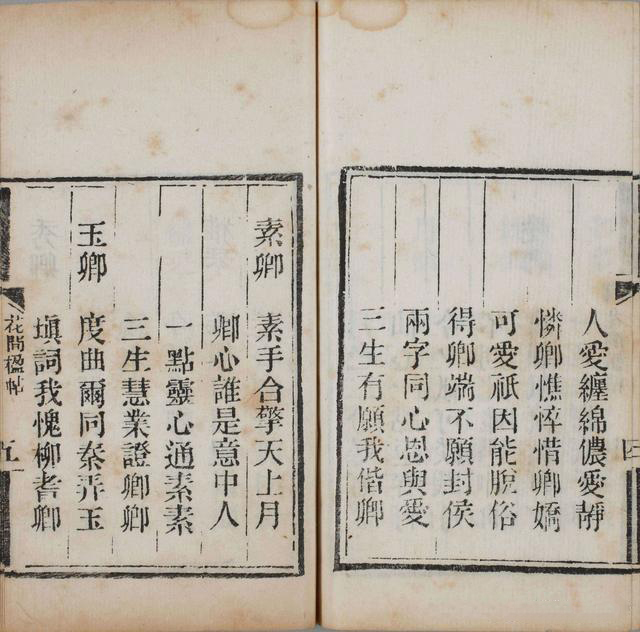 人愛纏綿儂愛靜
憐卿憔悴惜卿嬌
可愛祇因能脫俗
得卿端不願封侯
兩字同心恩與愛
三生有願我偕卿
四
素卿 素手合擎天上月
卿心誰是意中人
一點靈心通素素
三生慧業證卿卿
玉卿 度曲爾同秦弄玉
塡詞我愧柳耆卿
花間楹帖 五